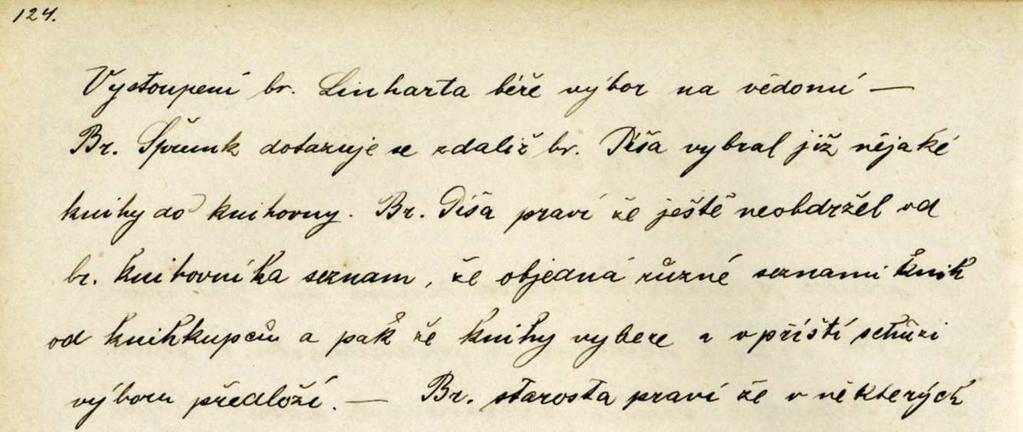 124.
Vystoupení br. Linharta béře výbor na vědomí —
Br. Šprunk dotazuje se zdaliž br. Píša vybral již nějaké
knihy do knihovny. Br. Píša praví že ještě neobdržel od
br. knihovníka seznam, že objedná různé seznami knih
od knihkupců a pak že knihy vybere a v příští schůzi
výboru předloží. — Br. starosta praví že v některých